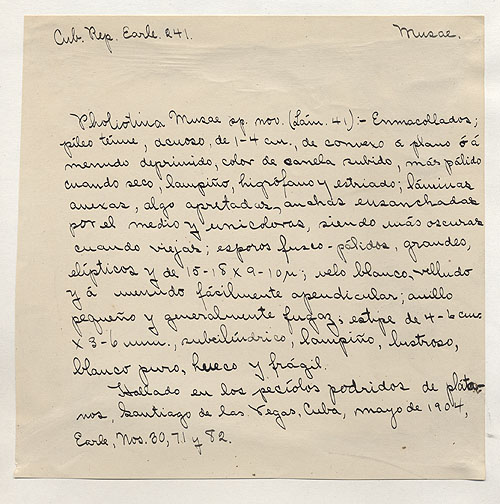 Cub. Rep. Earle. 241.
Musae.
Pholiotina Musae sp. nov. (Lám. 41):- Enmacollados;
píleo ténue, acuoso, de 1-4 cm., de convexo á plano ó á
menudo deprimido, color de canela subido, más pálido
cuando seco, lampiño, higrófano y estriado; láminas
anexas, algo apretadas, anchas ensanchadas
por el medio y unicoloras, siendo más oscuras
cuando viejas; esporos fusco-pálidos, grandes,
elípticos y de 15-18 x 9-10 µ; velo blanco, velludo
y á menudo fácilmente apendicular; anillo
pequeño y generalmente fugaz; estipe de 4-6 cm.
x 3-6 mm., subcilíndrico, lampiño, lustroso,
blanco puro, hueco y frágil.
Hallado en los pecíolos podridos de pláta-
nos, Santiago de las Vegas, Cuba, mayo de 1904,
Earle, Nos. 30, 71 y 82.